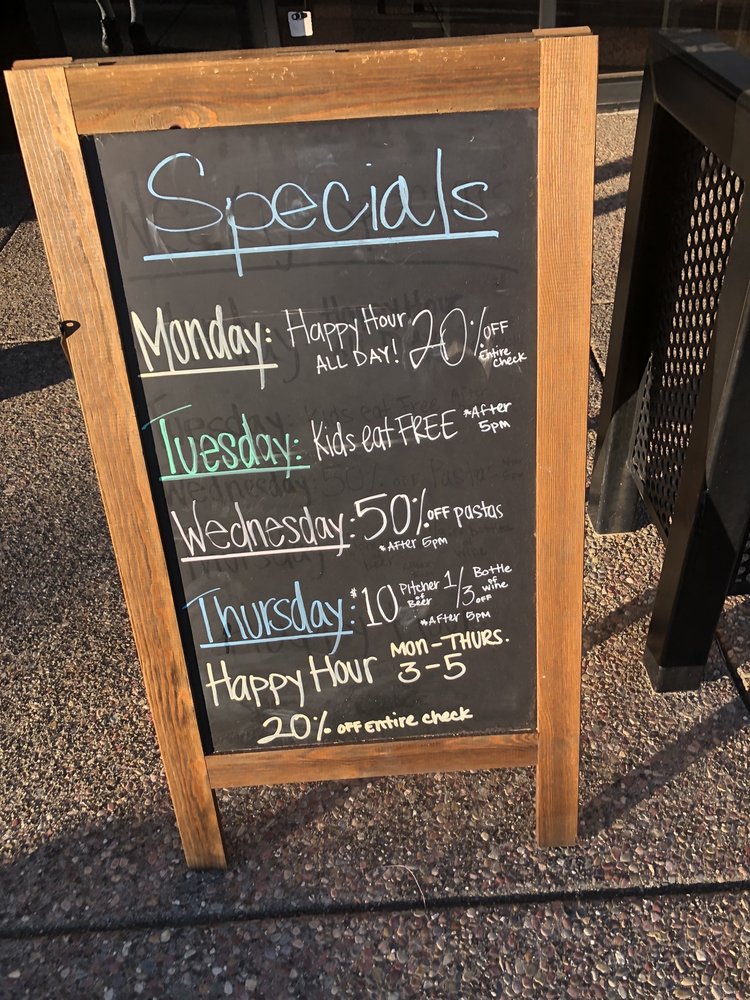 Specials
Monday: Happy Hour ALL DAY! 20% OFF Entire check
Tuesday: Kids eat FREE *After 5pm
Wednesday: 50% OFF pastas
*After 5pm
Thursday: $10 Pitcher of Beer 1/3 OFF Bottle of wine
*After 5pm
Happy Hour MON-THURS. 3-5
20% OFF Entire check